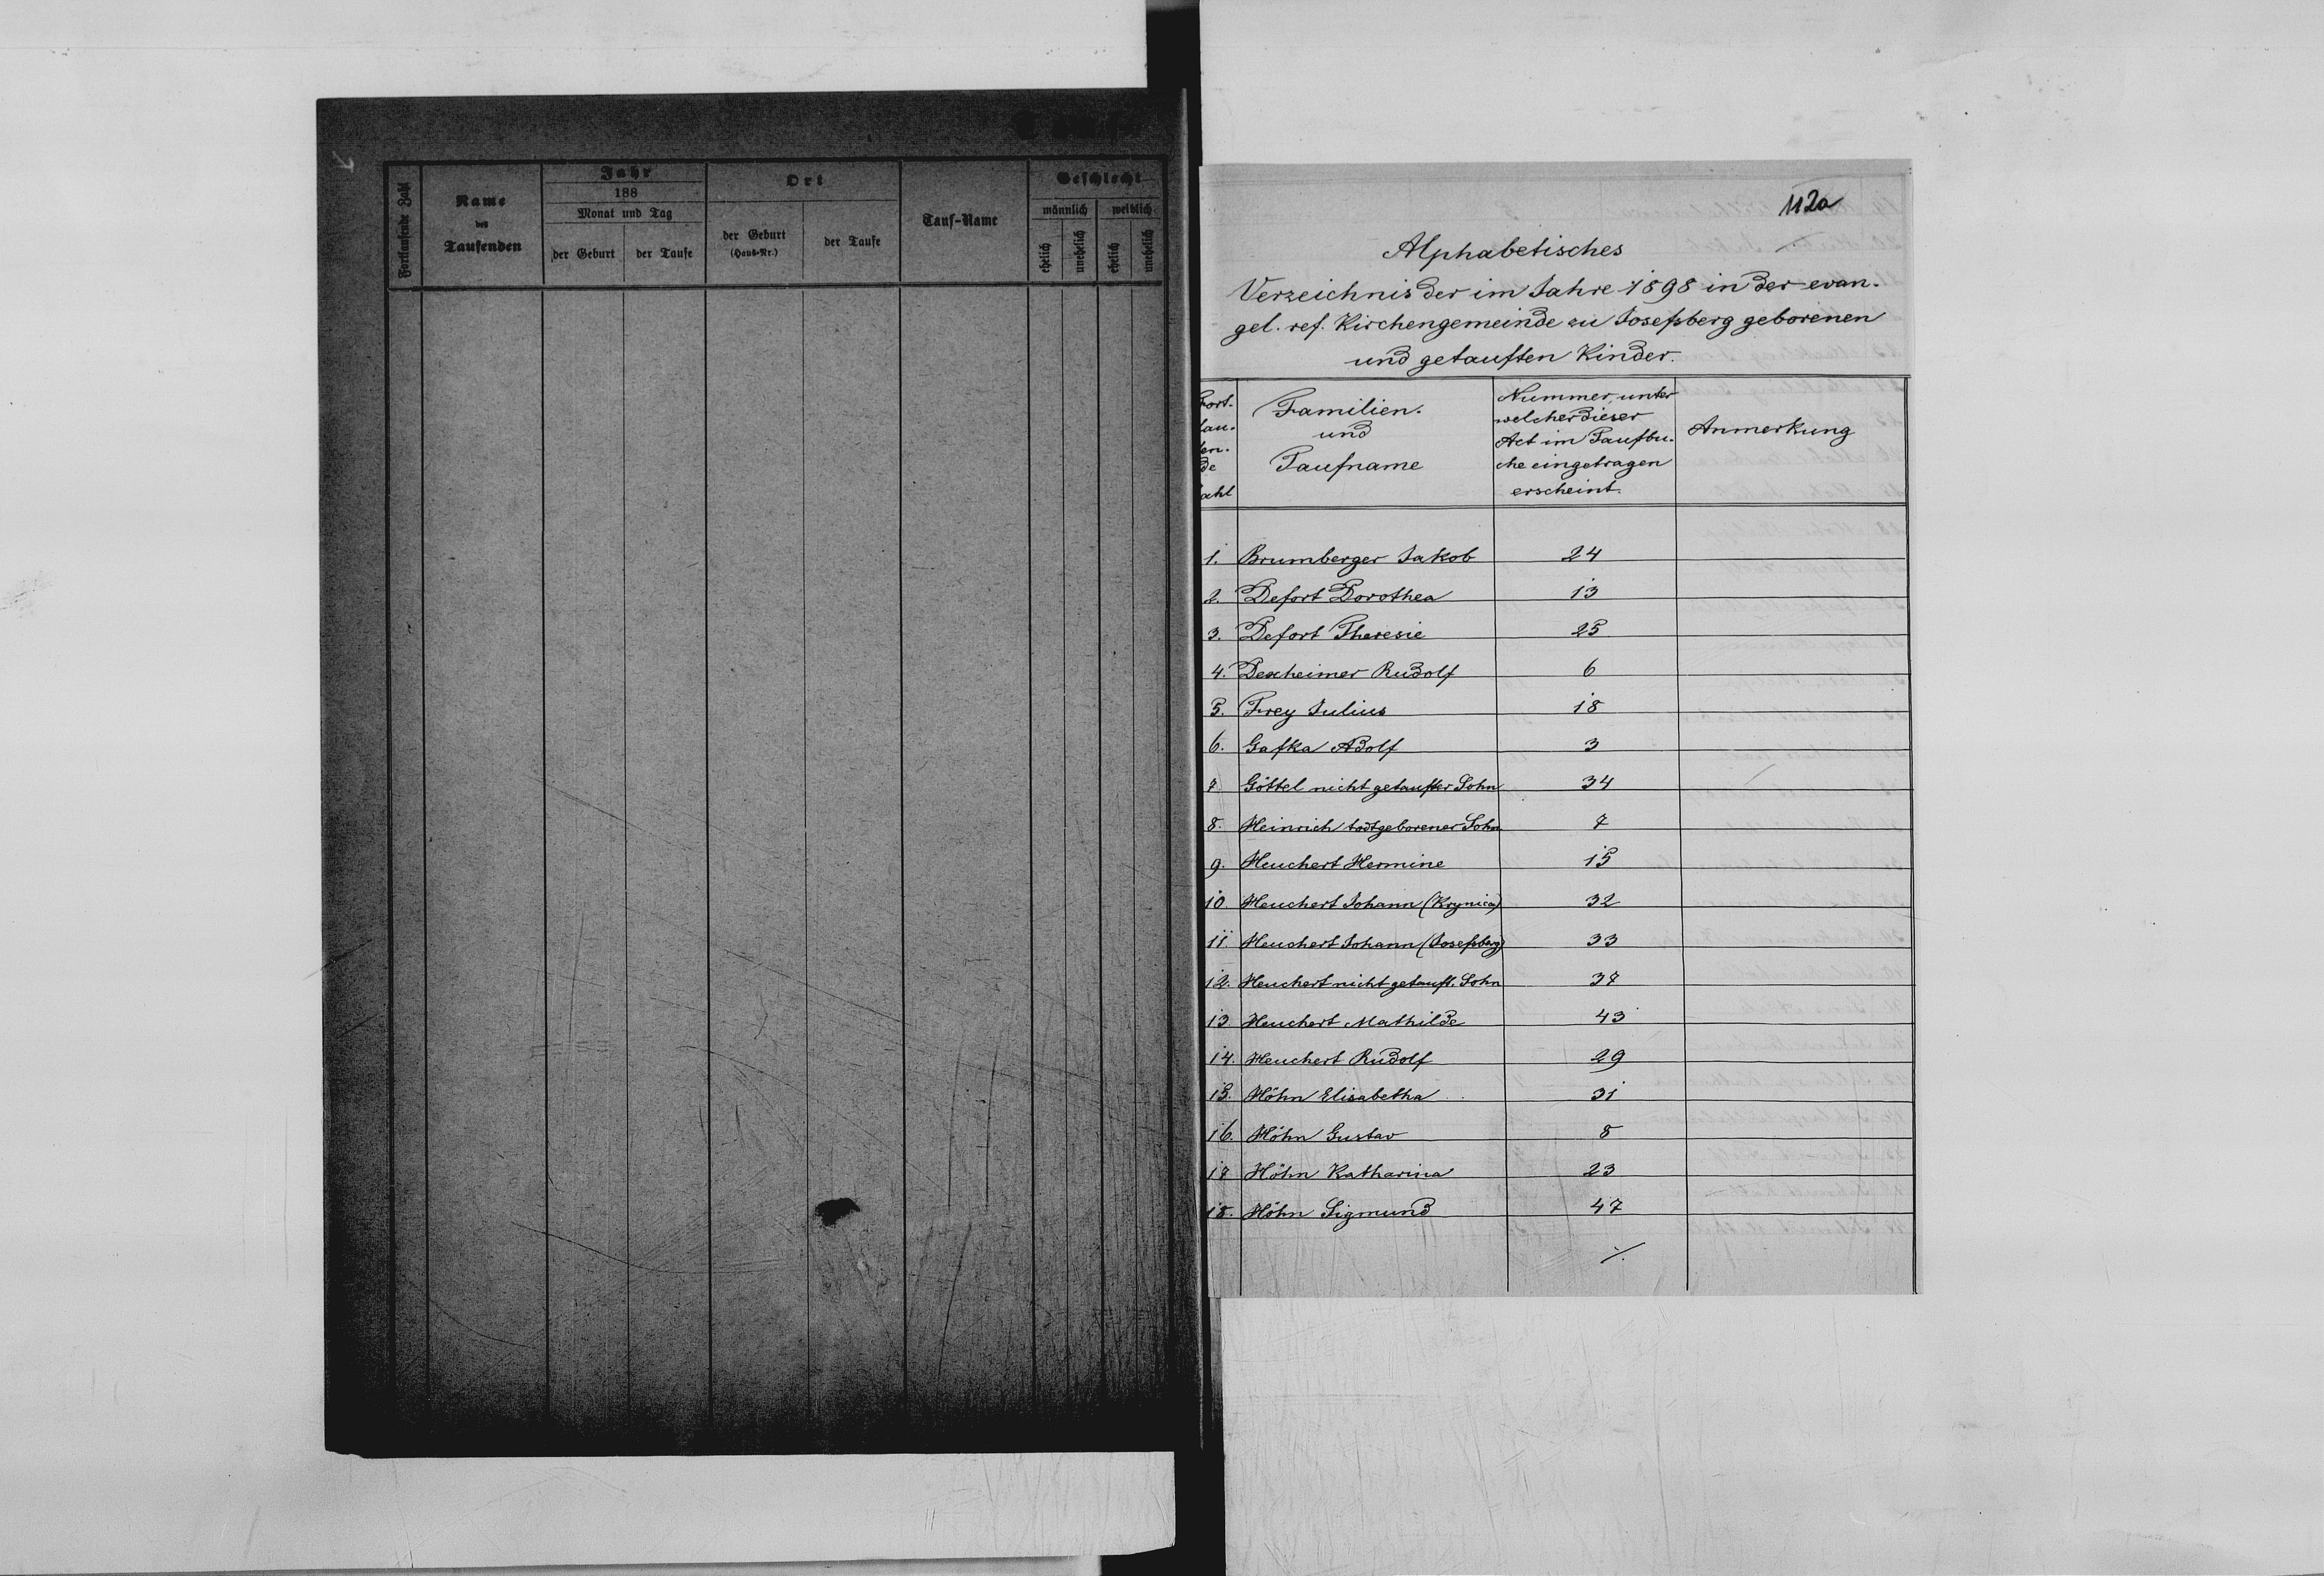 Fortlaufende Zahl
Name
des
Taufenden
Jahr
188
Monat und Tag
der Geburt
der Taufe
Ort
der Geburt
(Haus-Nr.)
der Taufe
Tauf-Name
Geschlecht
männlich
weiblich
ehelich
unehelich
ehelich
unehelich
112a
Alphabetisches
Verzeichnis der im Jahre 1898 in der evan-
gel. ref. Kirchengemeinde zu Josefsberg geborenen
und getauften Kinder.
Fort-
lau-
fen-
de
Zahl
Familien-
und
Taufname
Nummer, unter
welcher dieser
Act im Taufbu-
che eingetragen
erscheint.
Anmerkung
1. Brumberger Jakob 24
2. Defort Dorothea 13
3. Defort Theresie 25
4. Dexheimer Rudolf 6
5. Frey Julius 18
6. Gafka Adolf 3
7 Göttel nicht getaufter Sohn 34
8. Heinrich todtgeborener Sohn 7
9. Heuchert Hermine 15
10. Heuchert Johann (Krynica) 32
11. Heuchert Johann (Josefsberg) 33
12. Heuchert nicht getauft. Sohn 37
13 Heuchert Mathilde 43
14. Heuchert Rudolf 29
15. Höhn Elisabetha 31
16. Höhn Gustav 8
17 Höhn Katharina 23
18. Höhn Sigmund 47
./.